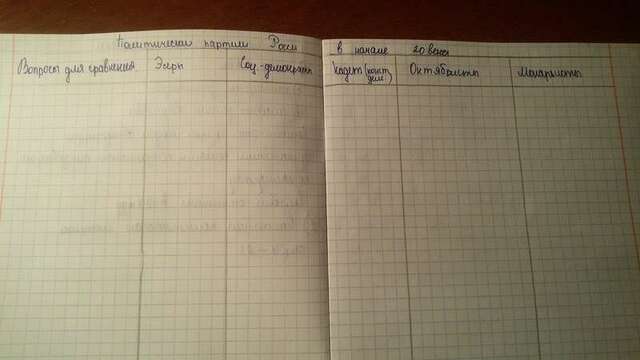 Политические партии России в начале 20 века
Вопросы для сравнения Эсеры Соц-демократы Кадеты (конст. дем.) Октябристы Монархисты